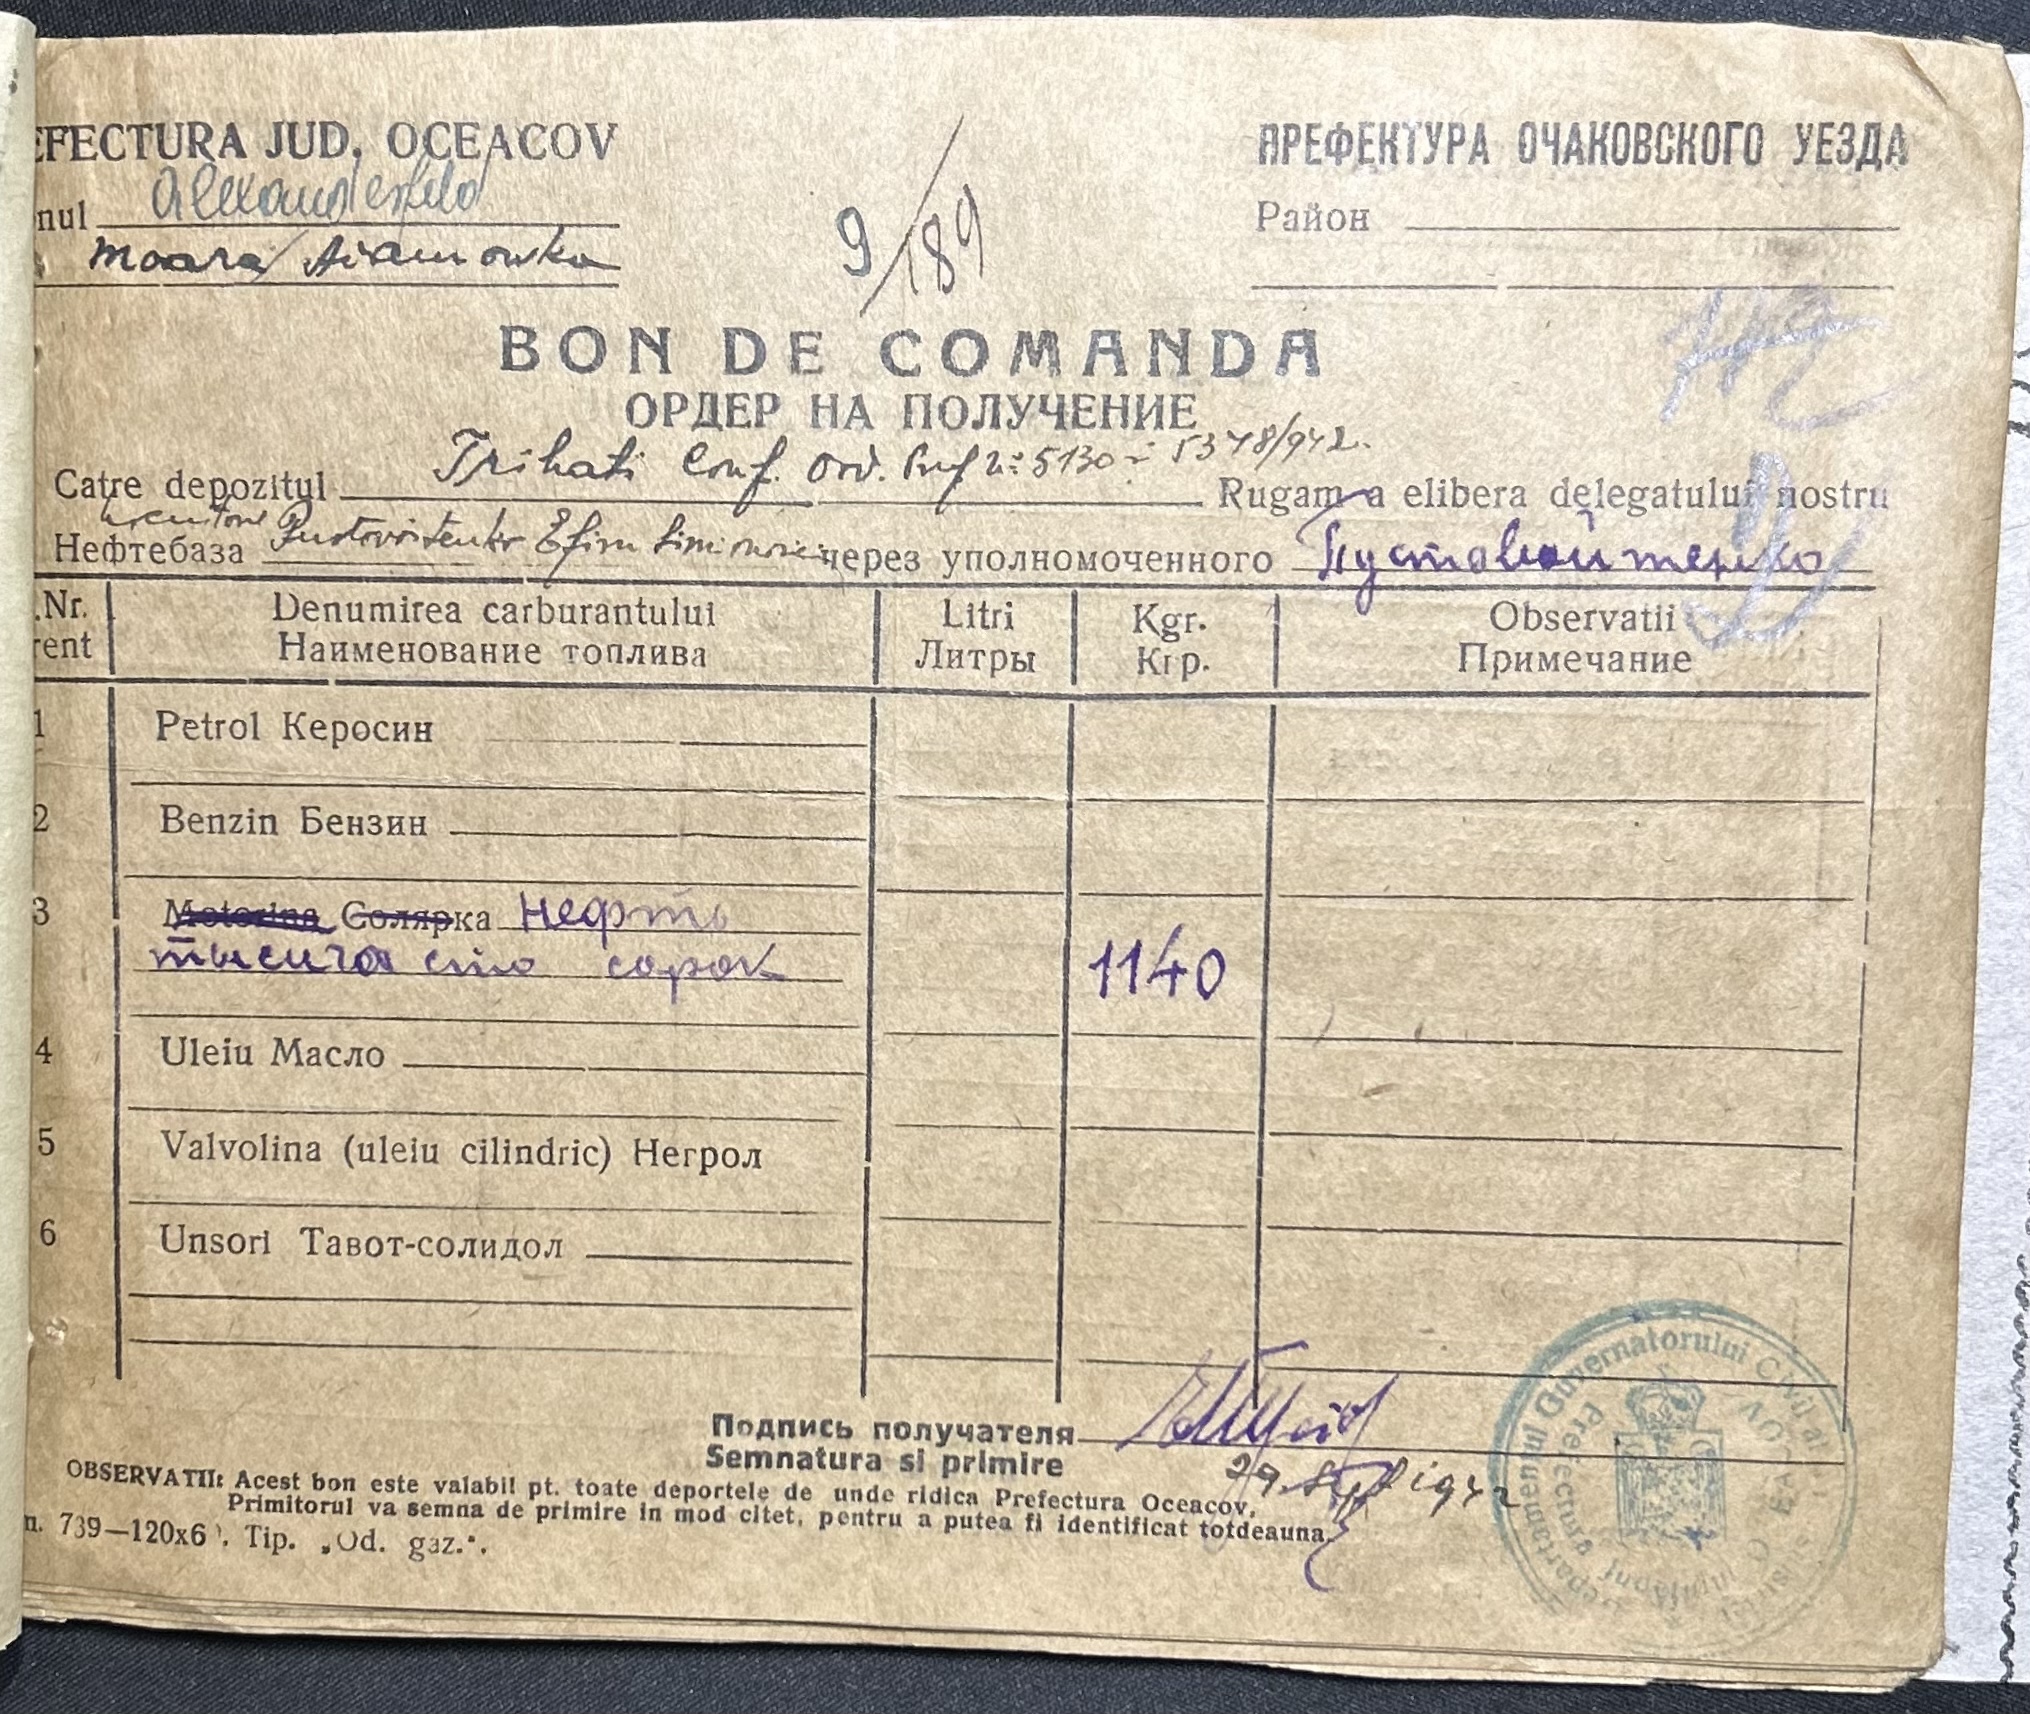 EFECTURA JUD. OCEACOV
nul Alexanderfeld
Moara
9/189
ПРЕФЕКТУРА ОЧАКОВСКОГО УЕЗДА
Район
BON DE COMANDA
ОРДЕР НА ПОЛУЧЕНИЕ
Catre depozitul Trihati Conf. Ord. Pref. 5130 5348/942. Rugam a elibera delegatului nostru
Нефтебаза Pustovoitenko Efim через уполномоченного Пустовойтенко
.Nr.
rent
Denumirea carburantului
Наименование топлива
Litri
Литры
Kgr.
Кгр.
Observatii
Примечание
1 Petrol Керосин
2 Benzin Бензин
3 Motorina Солярка Нефть
тысяча сто сорок 1140
4 Uleiu Масло
5 Valvolina (uleiu cilindric) Негрол
6 Unsori Тавот-солидол
Подпись получателя
Semnatura si primire
29 Sept 1942
OBSERVATII: Acest bon este valabil pt. toate deportele de unde ridica Prefectura Oceacov,
Primitorul va semna de primire in mod citet, pentru a putea fi identificat totdeauna
n. 739—120x6 . Tip. „Od. gaz.“.
Guvernatorului Civil al
Prefectura